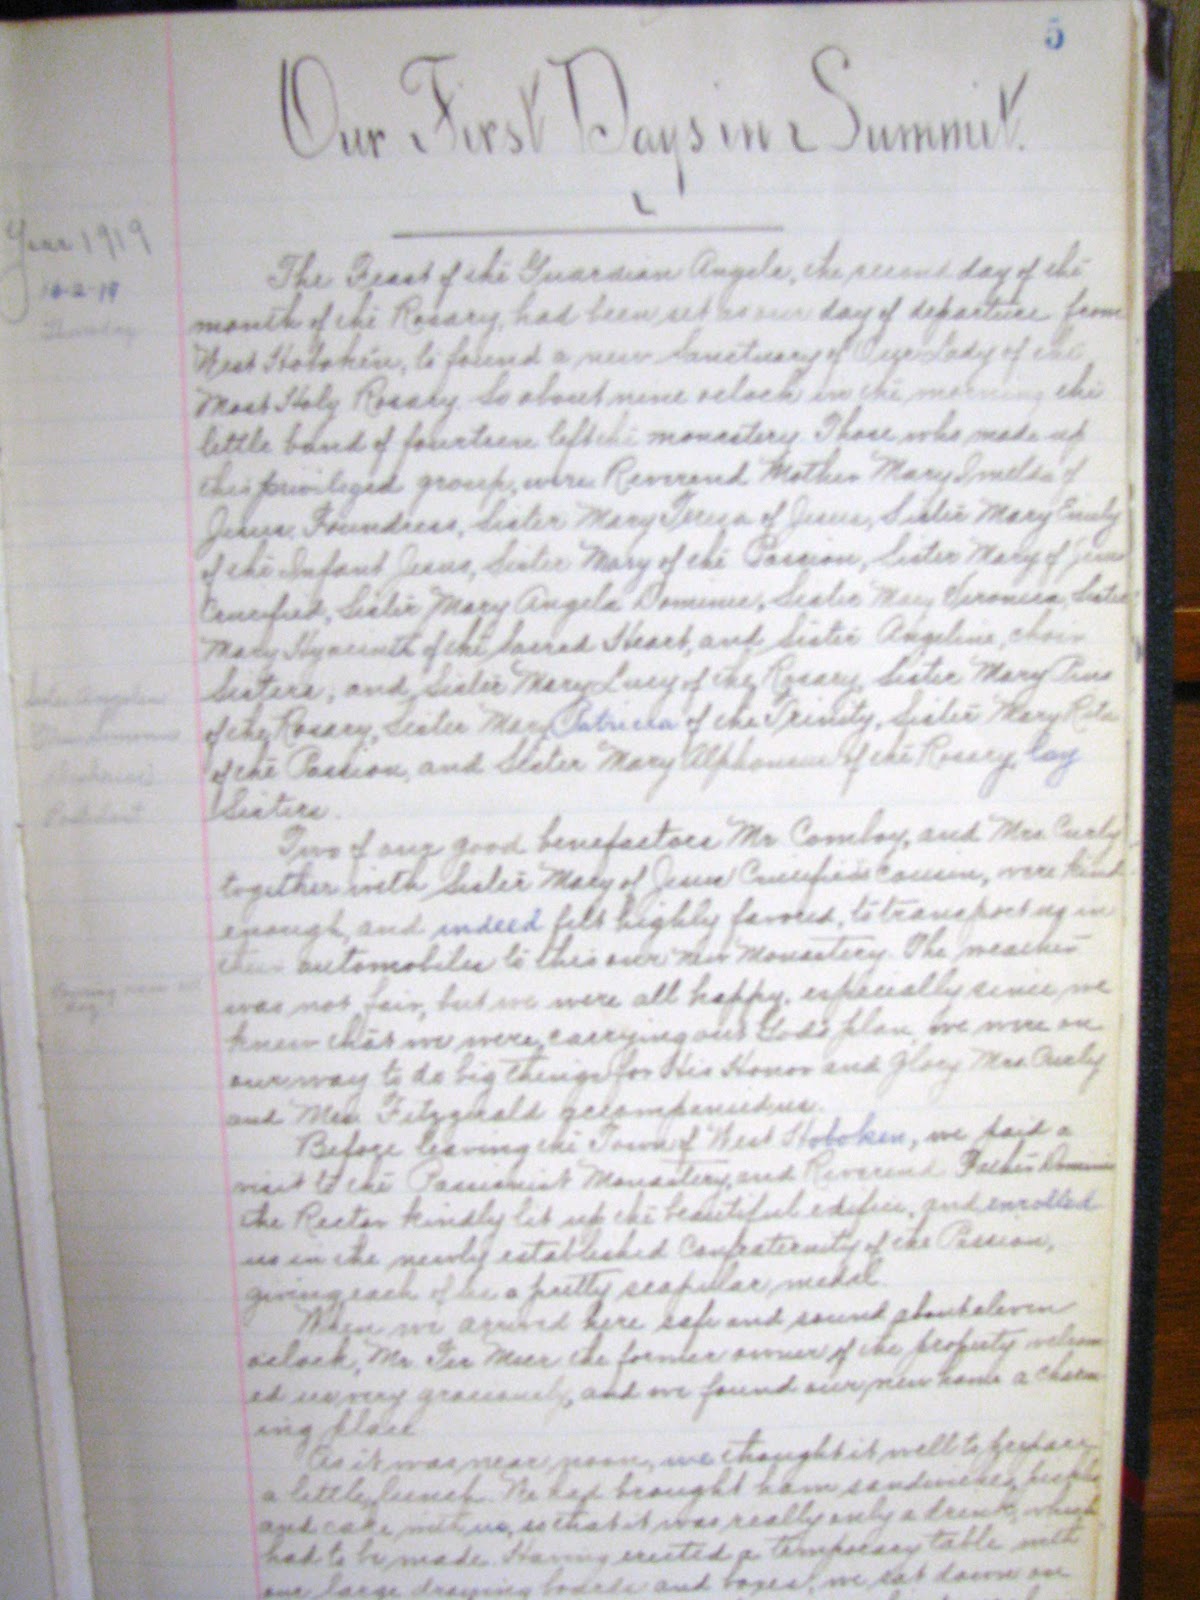 5
Our First Days in Summit.
Year 1919
10-2-19
Thursday
The Feast of the Guardian Angels, the second day of the
month of the Rosary, had been set as our day of departure from
West Hoboken, to found a new Sanctuary of Our Lady of the
Most Holy Rosary. So about nine oclock in the morning the
little band of fourteen left the monastery. Those who made up
this privileged group, were Reverend Mother Mary Imelda of
Jesus, Foundress, Sister Mary Teresa of Jesus, Sister Mary Emily
of the Infant Jesus, Sister Mary of the Passion, Sister Mary of Jesus
Crucified, Sister Mary Angela Dominic, Sister Mary Veronica, Sister
Mary Hyacinth of the Sacred Heart, and Sister Angeline, choir
Sisters, and Sister Mary Lucy of the Rosary, Sister Mary Pius
of the Rosary, Sister Mary Patricia of the Trinity, Sister Mary Rita
of the Passion, and Sister Mary Alphonsus of the Rosary, lay
Sisters.
Sister Angeline
Postulant
Two of our good benefactors Mr. Comboy, and Mrs. Curly
together with Sister Mary of Jesus Crucified's cousin, were kind
enough, and indeed felt highly favored, to transport us in
their automobiles to this our new Monastery. The weather
was not fair, but we were all happy, especially since we
knew that we were carrying out God's plan, we were on
our way to do big things for His Honor and Glory. Mrs. Curly
and Mrs. Fitzgerald accompanied us.
day
Before leaving the Town of West Hoboken, we paid a
visit to the Passionist Monastery, and Reverend Father Dominic
the Rector kindly lit up the beautiful edifice, and enrolled
us in the newly established Confraternity of the Passion,
giving each of us a pretty scapular medal.
When we arrived here safe and sound about eleven
o'clock, Mr. Ter Meer the former owner of the property welcom-
ed us very graciously, and we found our new home a charm-
ing place.
As it was near noon, we thought it well to
a little lunch. We had brought ham sandwiches, pickles
and cake with us, so that it was really only a drink, which
had to be made. Having erected a temporary table with
our large drawing boards and boxes, we sat down on